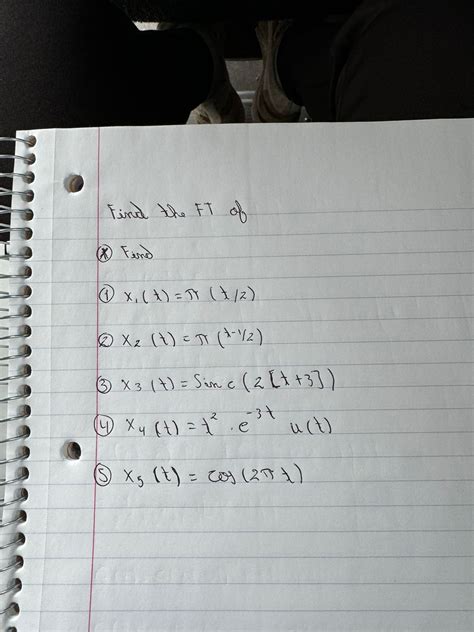 Find the FT of
* Find
① x₁(t) = π (t/2)
② x₂ (t) = π (t-1/2)
③ x₃ (t) = Sinc (2 [t+3])
④ x₄ (t) = t² · e⁻³ᵗ u(t)
⑤ x₅ (t) = cos (2πt)